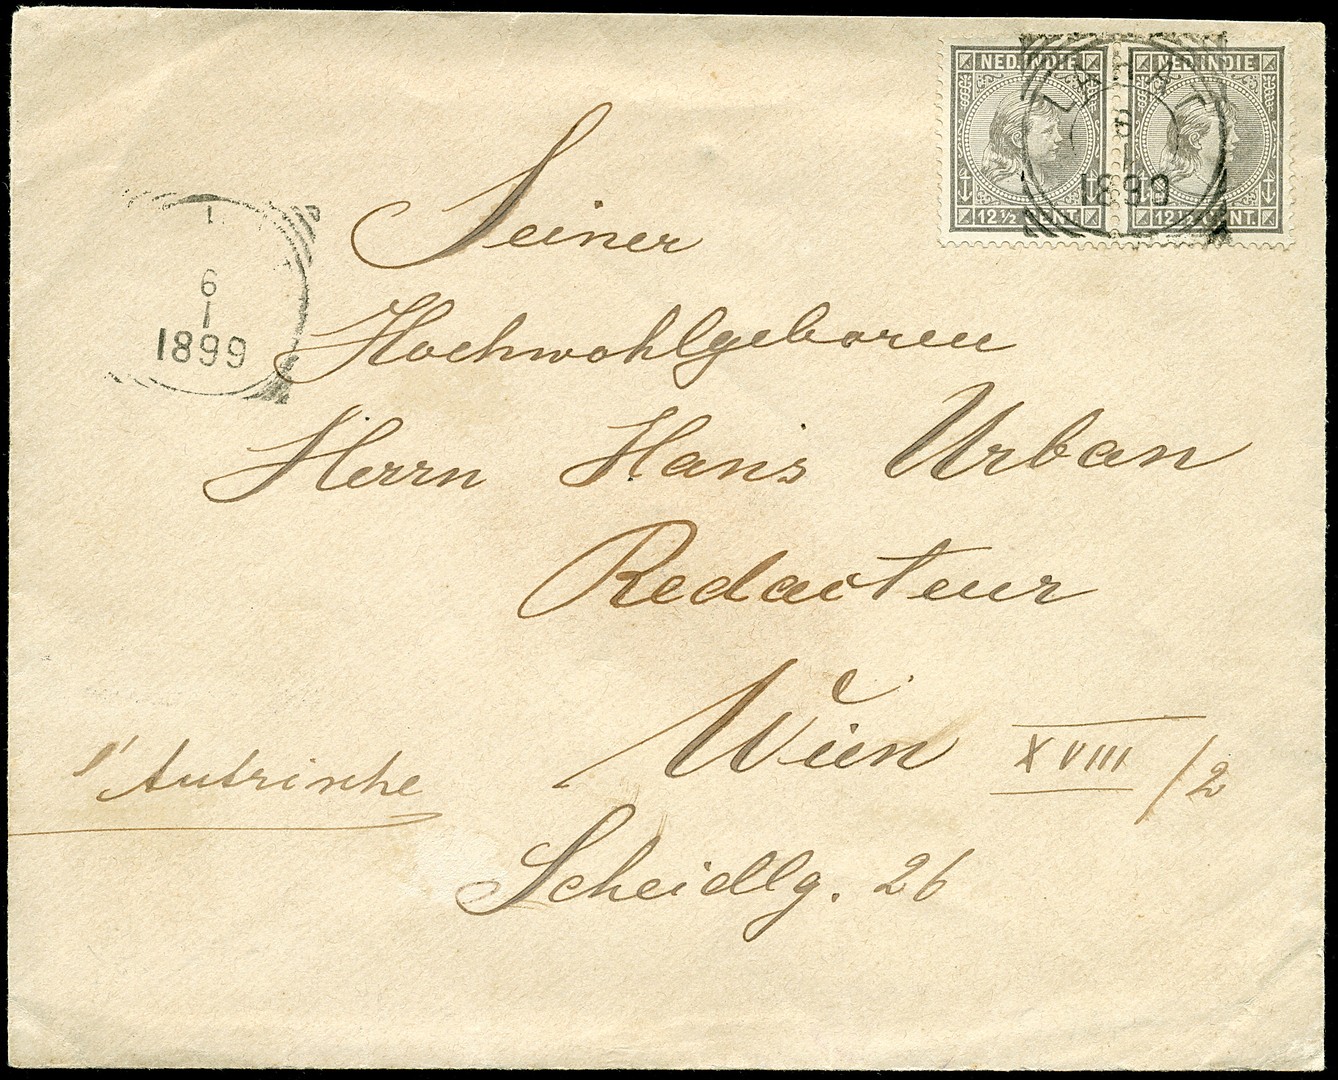 NED. INDIE NED. INDIE
LAHAT
6
1
1899
12 ½ CENT. 12 ½ CENT.
6
1
1899
Seiner
Hochwohlgeboren
Herrn Hans Urban
Redacteur
Wien XVIII/2
l'Autriche
Scheidlg. 26